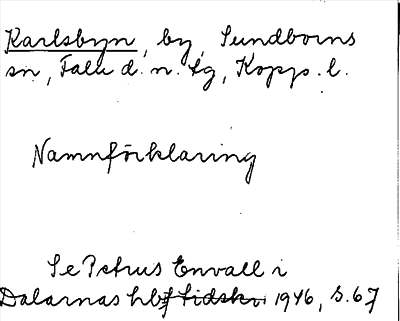 Karlsbyn, by, Sundborns
sn, Falu d. n. tg, Kopp. l.
Namnförklaring
Se Petrus Envall i
Dalarnas hbf tidskr. 1946, S. 67